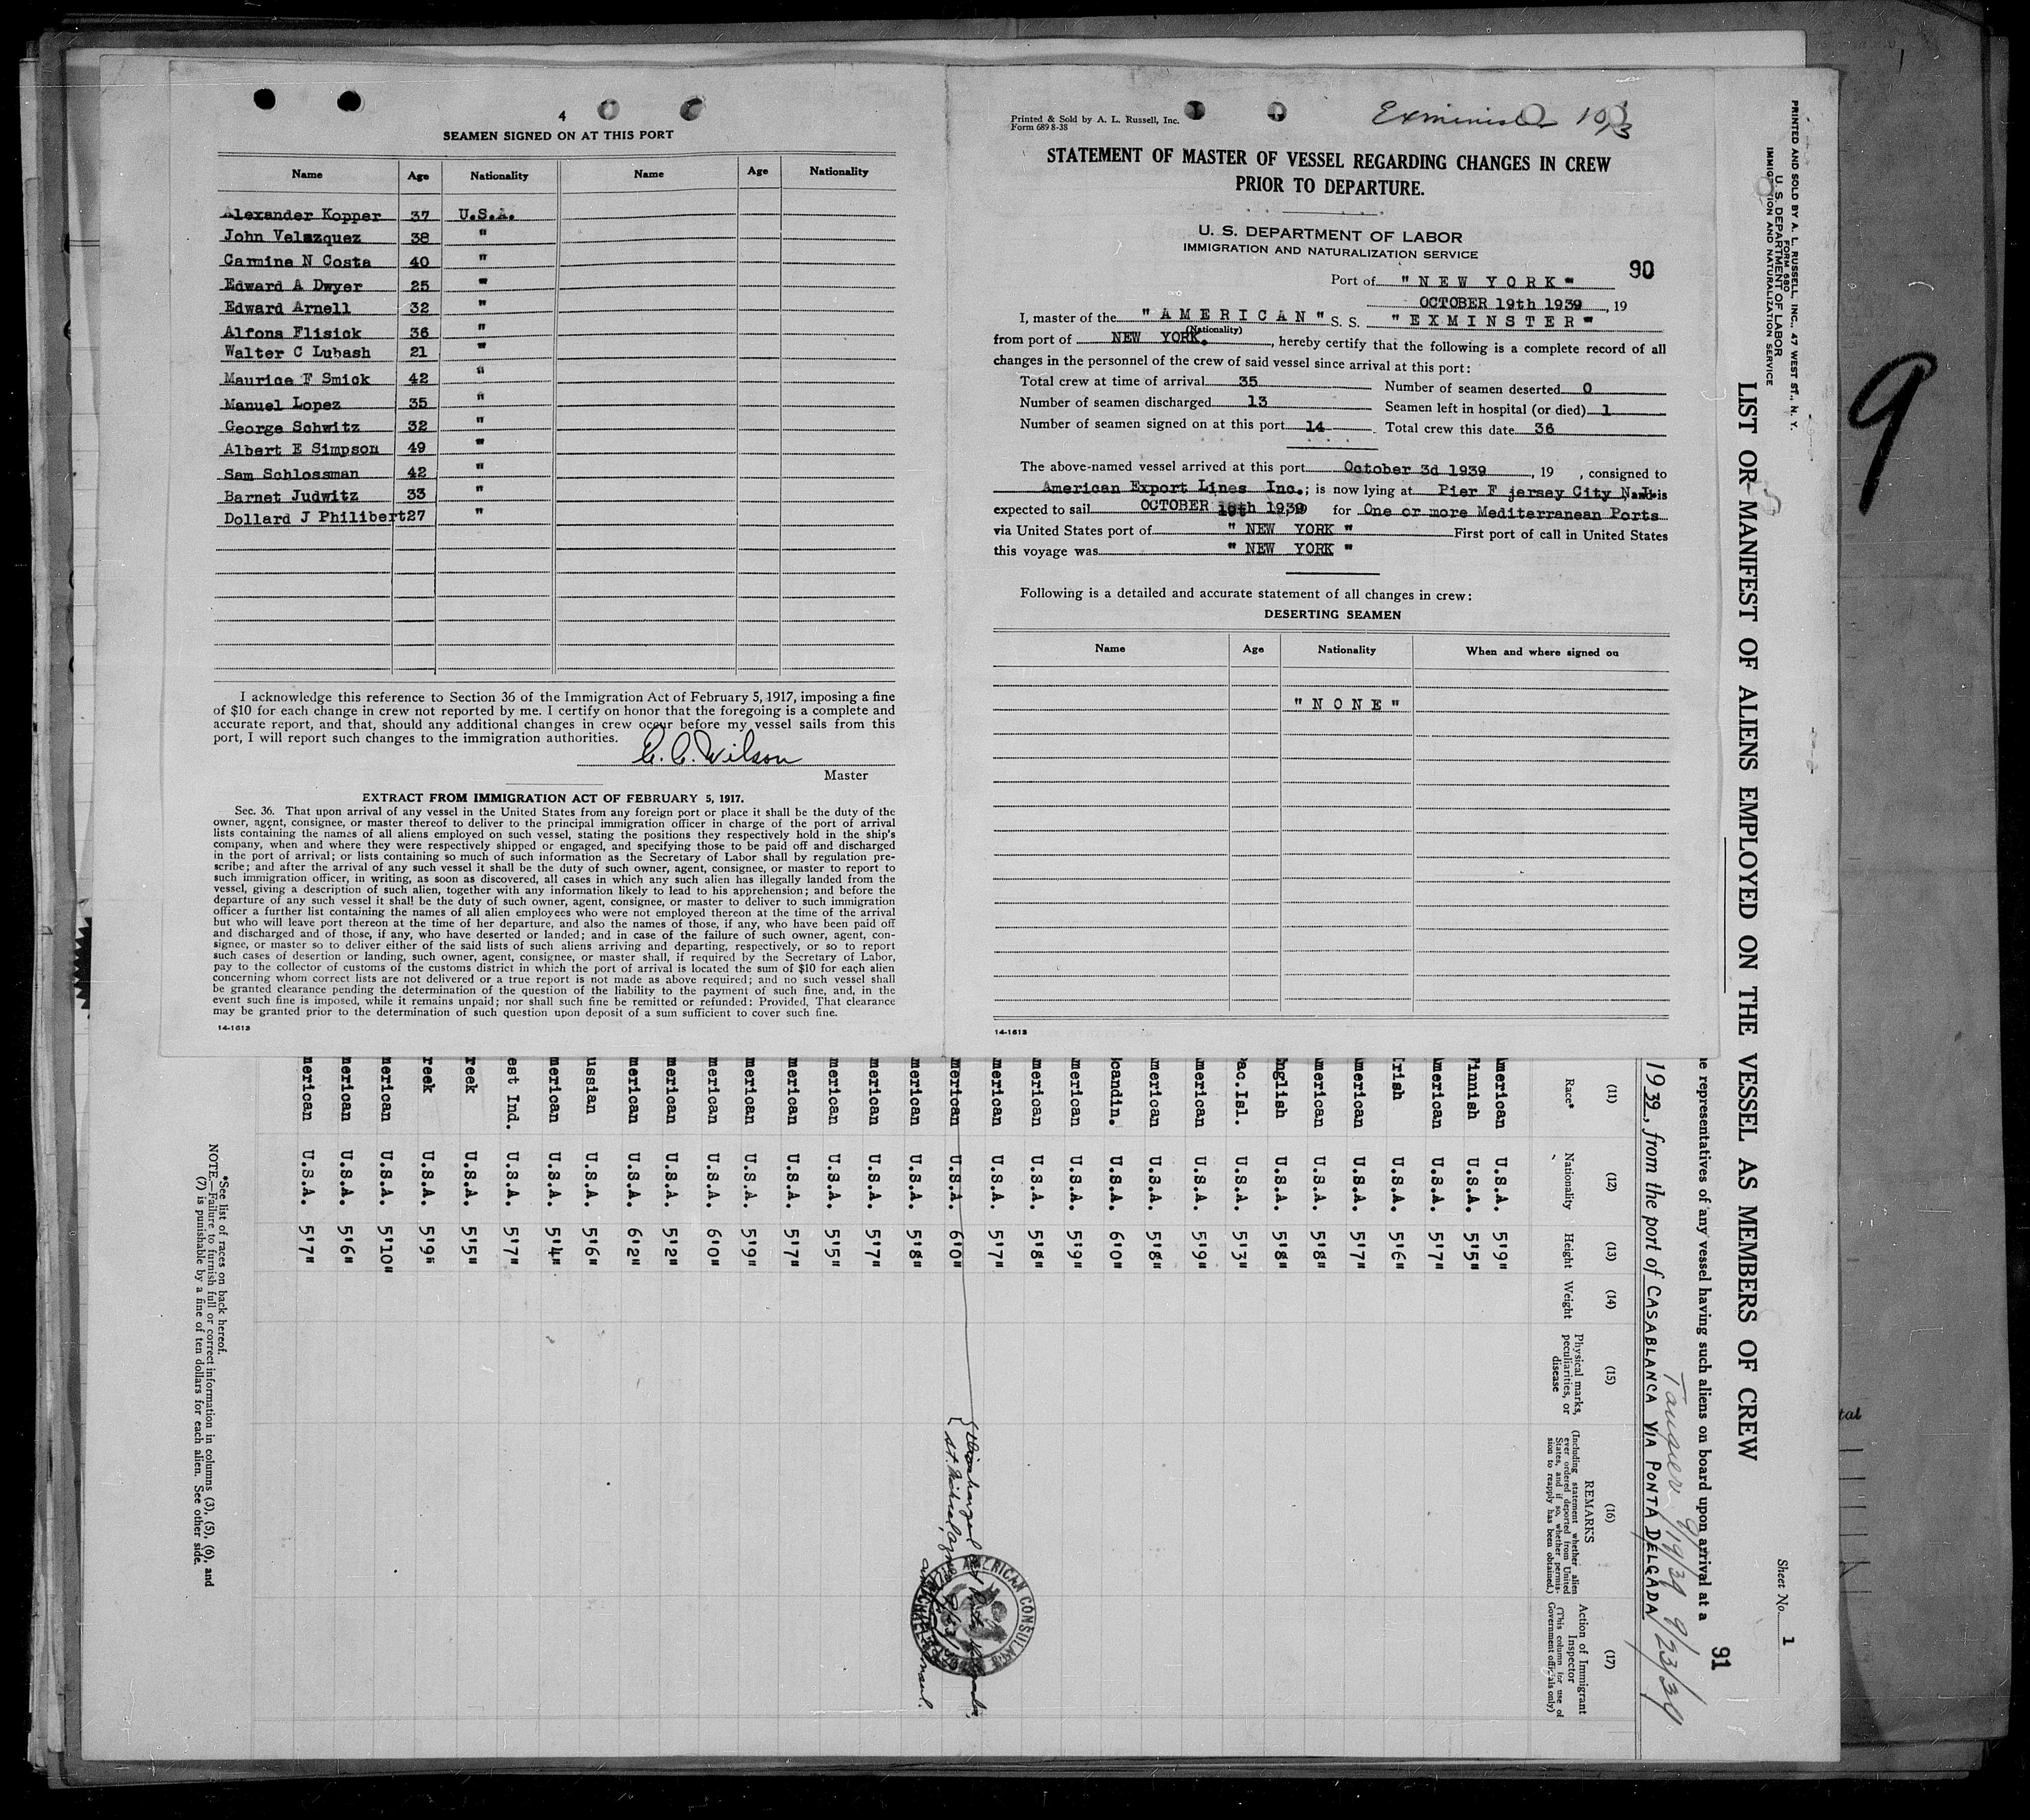 4
SEAMEN SIGNED ON AT THIS PORT
Name Age Nationality Name Age Nationality
Alexander Kopper 37 U.S.A.
John Velazquez 38 "
Carmine N Costa 40 "
Edward A Dwyer 25 "
Edward Arnell 32 "
Alfons Flisick 36 "
Walter C Lubash 21 "
Maurice F Smick 42 "
Manuel Lopez 35 "
George Schwitz 32 "
Albert E Simpson 49 "
Sam Schlossman 42 "
Barnet Judwitz 33 "
Dollard J Philibert 27 "
I acknowledge this reference to Section 36 of the Immigration Act of February 5, 1917, imposing a fine
of $10 for each change in crew not reported by me. I certify on honor that the foregoing is a complete and
accurate report, and that, should any additional changes in crew occur before my vessel sails from this
port, I will report such changes to the immigration authorities.
C. C. Wilson
Master
EXTRACT FROM IMMIGRATION ACT OF FEBRUARY 5, 1917.
Sec. 36. That upon arrival of any vessel in the United States from any foreign port or place it shall be the duty of the
owner, agent, consignee, or master thereof to deliver to the principal immigration officer in charge of the port of arrival
lists containing the names of all aliens employed on such vessel, stating the positions they respectively hold in the ship's
company, when and where they were respectively shipped or engaged, and specifying those to be paid off and discharged
in the port of arrival; or lists containing so much of such information as the Secretary of Labor shall by regulation pre-
scribe; and after the arrival of any such vessel it shall be the duty of such owner, agent, consignee, or master to report to
such immigration officer, in writing, as soon as discovered, all cases in which any such alien has illegally landed from the
vessel, giving a description of such alien, together with any information likely to lead to his apprehension; and before the
departure of any such vessel it shall be the duty of such owner, agent, consignee, or master to deliver to such immigration
officer a further list containing the names of all alien employees who were not employed thereon at the time of the arrival
but who will leave port thereon at the time of her departure, and also the names of those, if any, who have been paid off
and discharged and of those, if any, who have deserted or landed; and in case of the failure of such owner, agent, con-
signee, or master so to deliver either of the said lists of such aliens arriving and departing, respectively, or so to report
such cases of desertion or landing, such owner, agent, consignee, or master shall, if required by the Secretary of Labor,
pay to the collector of customs of the customs district in which the port of arrival is located the sum of $10 for each alien
concerning whom correct lists are not delivered or a true report is not made as above required; and no such vessel shall
be granted clearance pending the determination of the question of the liability to the payment of such fine, and, in the
event such fine is imposed, while it remains unpaid; nor shall such fine be remitted or refunded: Provided, That clearance
may be granted prior to the determination of such question upon deposit of a sum sufficient to cover such fine.
14-1613
Printed & Sold by A. L. Russell, Inc.
Form 689 8-38
Exminister 10/3
STATEMENT OF MASTER OF VESSEL REGARDING CHANGES IN CREW
PRIOR TO DEPARTURE.
U. S. DEPARTMENT OF LABOR
IMMIGRATION AND NATURALIZATION SERVICE
90
Port of "NEW YORK"
OCTOBER 19th 1939, 19
I, master of the "AMERICAN" S. S. "EXMINSTER"
(Nationality)
from port of NEW YORK., hereby certify that the following is a complete record of all
changes in the personnel of the crew of said vessel since arrival at this port:
Total crew at time of arrival 35 Number of seamen deserted 0
Number of seamen discharged 13 Seamen left in hospital (or died) 1
Number of seamen signed on at this port 14 Total crew this date 36
The above-named vessel arrived at this port October 3d 1939, 19 , consigned to
American Export Lines Inc.; is now lying at Pier F jersey City N.J. and is
expected to sail OCTOBER 19th 1939 for One or more Mediterranean Ports
via United States port of "NEW YORK" First port of call in United States
this voyage was "NEW YORK"
Following is a detailed and accurate statement of all changes in crew:
DESERTING SEAMEN
Name Age Nationality When and where signed on
"NONE"
14-1613
PRINTED AND SOLD BY A. L. RUSSELL, INC., 47 WEST ST., N. Y.
FORM 680
U. S. DEPARTMENT OF LABOR
IMMIGRATION AND NATURALIZATION SERVICE
LIST OR MANIFEST OF ALIENS EMPLOYED ON THE VESSEL AS MEMBERS OF CREW
Sheet No. 1
91
9
tal
he representatives of any vessel having such aliens on board upon arrival at a
Tangier 9/19/39 9/23/39
1939, from the port of CASABLANCA VIA PONTA DELGADA
(11) (12) (13) (14) (15) (16) (17)
Race* Nationality Height Weight Physical marks, peculiarities, or disease
REMARKS (Including statement whether alien ever ordered deported from United States, and if so, whether permission to reapply has been obtained.)
Action of Immigrant Inspector (This column for use of Government officials only)
merican U.S.A. 5'9"
Finnish U.S.A. 5'5"
American U.S.A. 5'7"
Irish U.S.A. 5'6"
American U.S.A. 5'7"
American U.S.A. 5'8"
nglish U.S.A. 5'8"
ac.Isl. U.S.A. 5'3"
merican U.S.A. 5'9"
merican U.S.A. 5'8"
candin. U.S.A. 6'0"
merican U.S.A. 5'9"
merican U.S.A. 5'8"
merican U.S.A. 5'7"
merican U.S.A. 6'0"
merican U.S.A. 5'8"
merican U.S.A. 5'7"
merican U.S.A. 5'5"
merican U.S.A. 5'7"
merican U.S.A. 5'9"
merican U.S.A. 6'0"
merican U.S.A. 5'2"
merican U.S.A. 6'2"
ussian U.S.A. 5'6"
merican U.S.A. 5'4"
est Ind. U.S.A. 5'7"
reek U.S.A. 5'5"
reek U.S.A. 5'9"
merican U.S.A. 5'10"
merican U.S.A. 5'6"
merican U.S.A. 5'7"
Discharged at
St. Michael
AMERICAN CONSULATE
*See list of races on back hereof.
NOTE.—Failure to furnish full or correct information in columns (3), (5), (6), and
(7) is punishable by a fine of ten dollars for each alien. See other side.